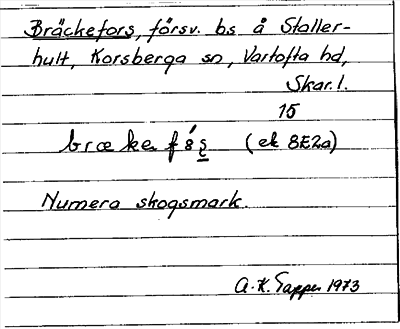 Bräckefors, försv. bs å Staller-
hult, Korsberga sn, Vartofta hd,
Skar. l.
15
bræ ke f 8́ s̨ (ek 8E2a)
Numera skogsmark.
A.K. Tapper 1973